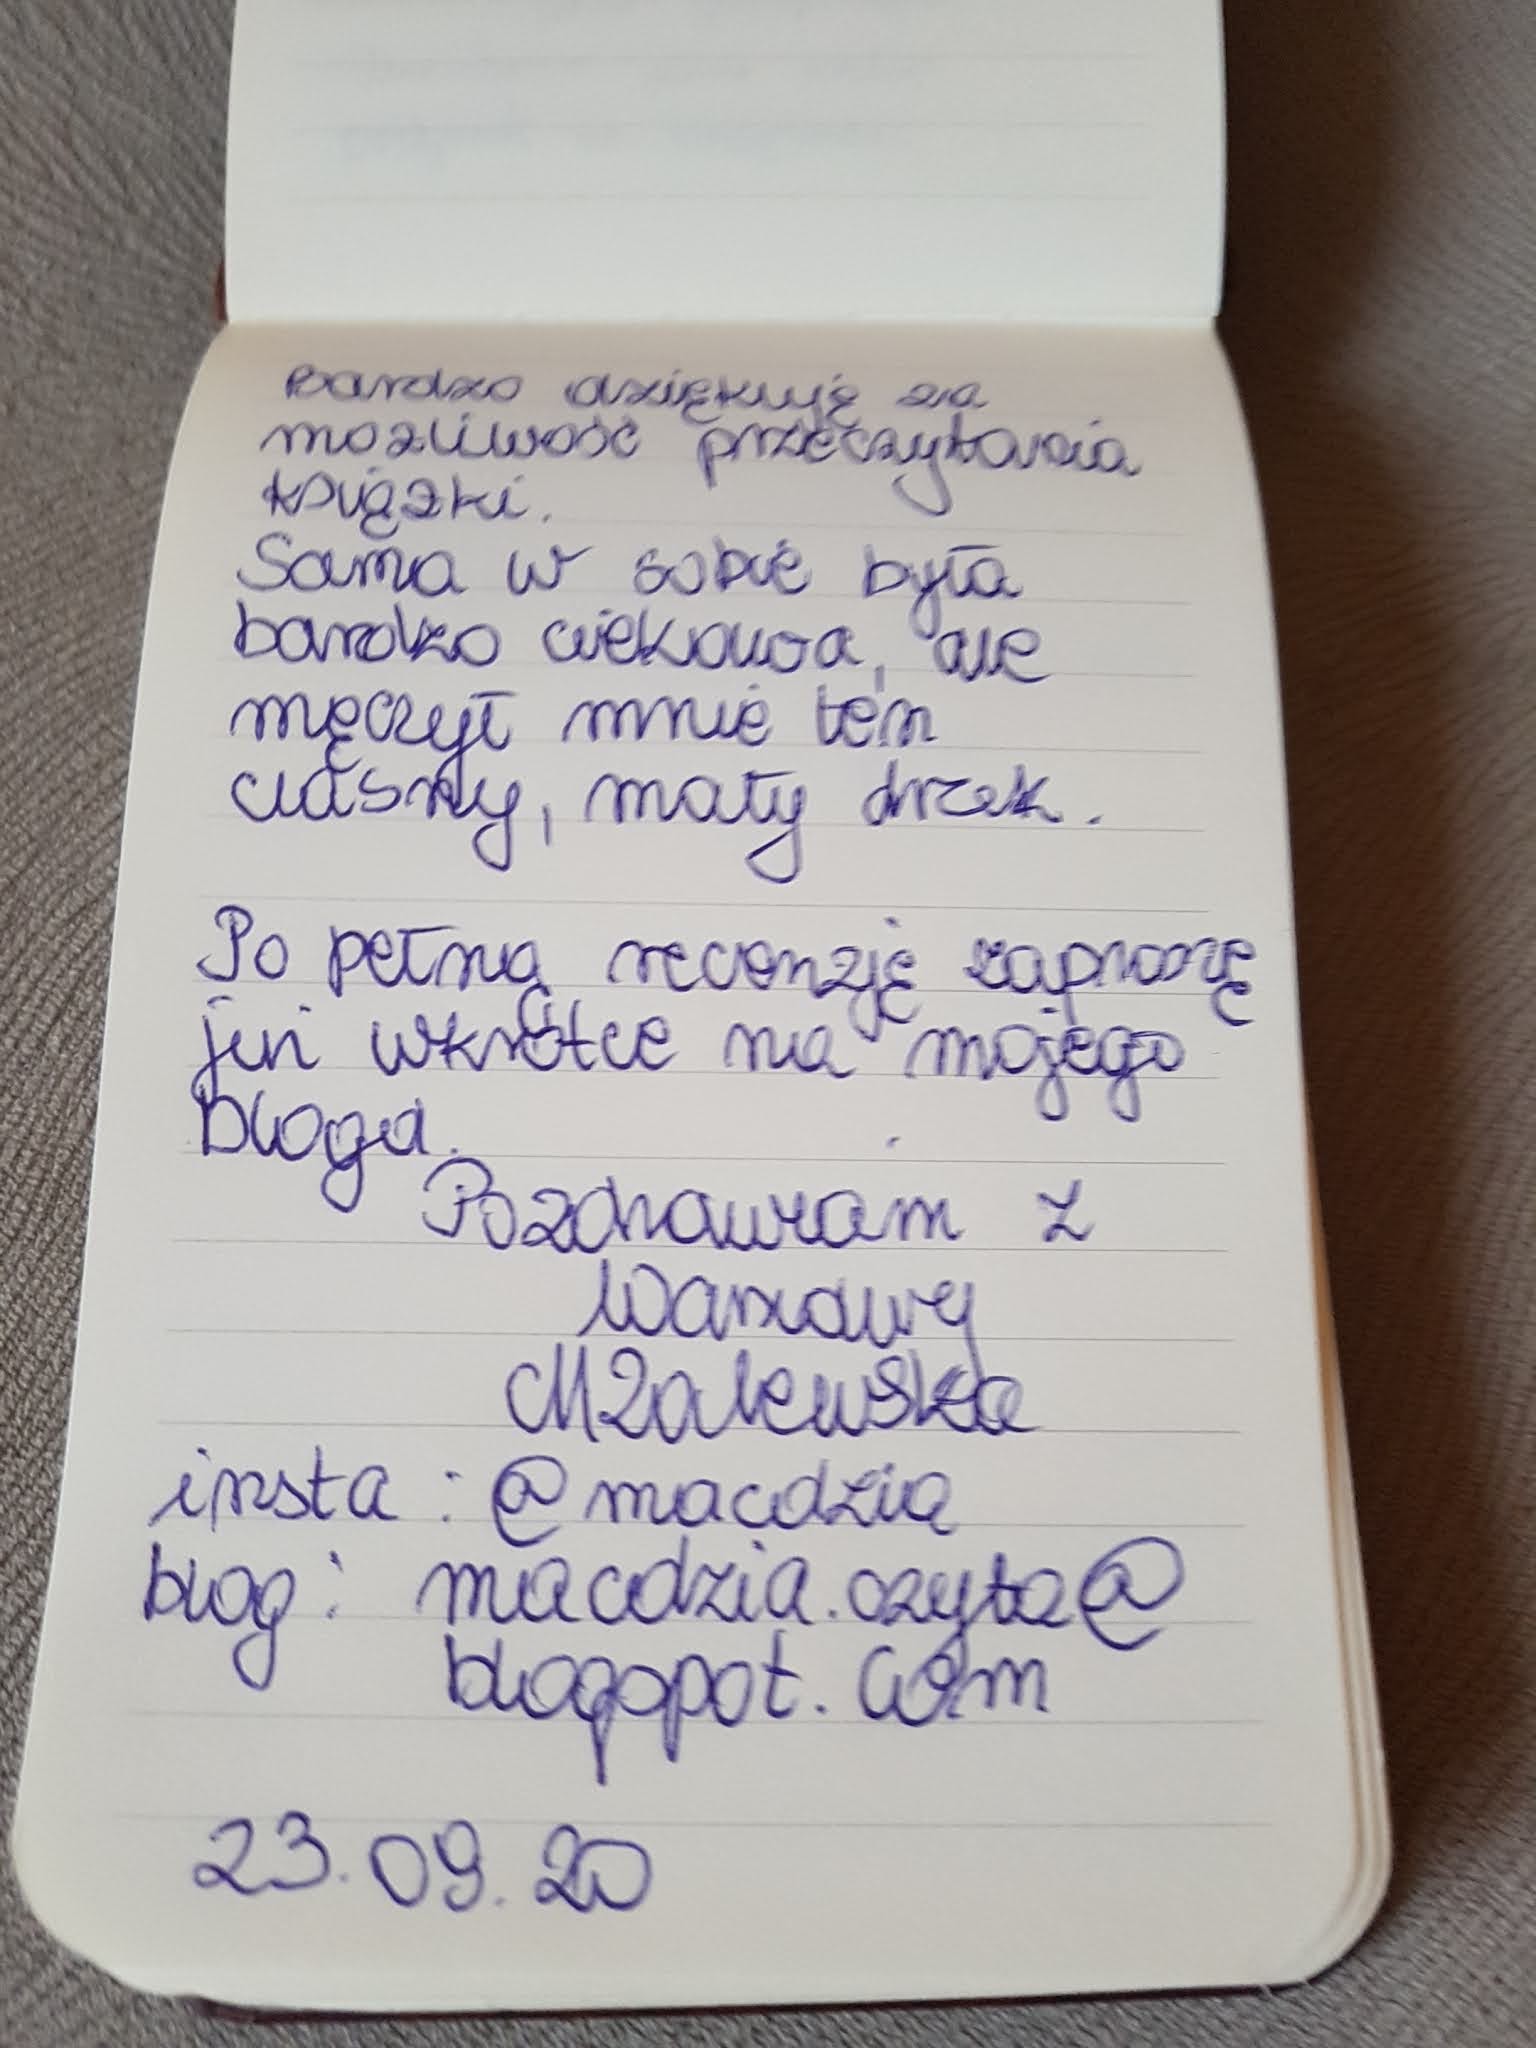 Bardzo dziękuję za
możliwość przeczytania
książki.
Sama w sobie była
bardzo ciekawa, ale
męczył mnie ten
ciasny, mały druk.
Po pełną recenzję zaproszę
już wkrótce na mojego
bloga.
Pozdrawiam z
Warszawy
MZalewska
insta: @macdzia
blog: macdzia.czyta@
blogspot.com
23.09.20